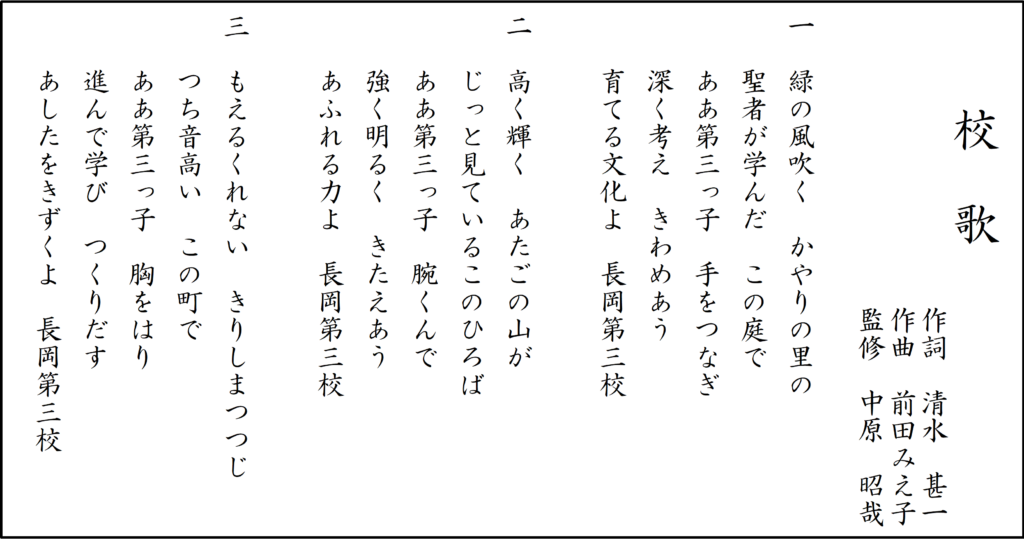 校歌
作詞　清水　甚一
作曲　前田みえ子
監修　中原　昭哉
一
緑の風吹く　かやりの里の
聖者が学んだ　この庭で
ああ第三っ子　手をつなぎ
深く考え　きわめあう
育てる文化よ　長岡第三校
二
高く輝く　あたごの山が
じっと見ているこのひろば
ああ第三っ子　腕くんで
強く明るく　きたえあう
あふれる力よ　長岡第三校
三
もえるくれない　きりしまつつじ
つち音高い　この町で
ああ第三っ子　胸をはり
進んで学び　つくりだす
あしたをきずくよ　長岡第三校